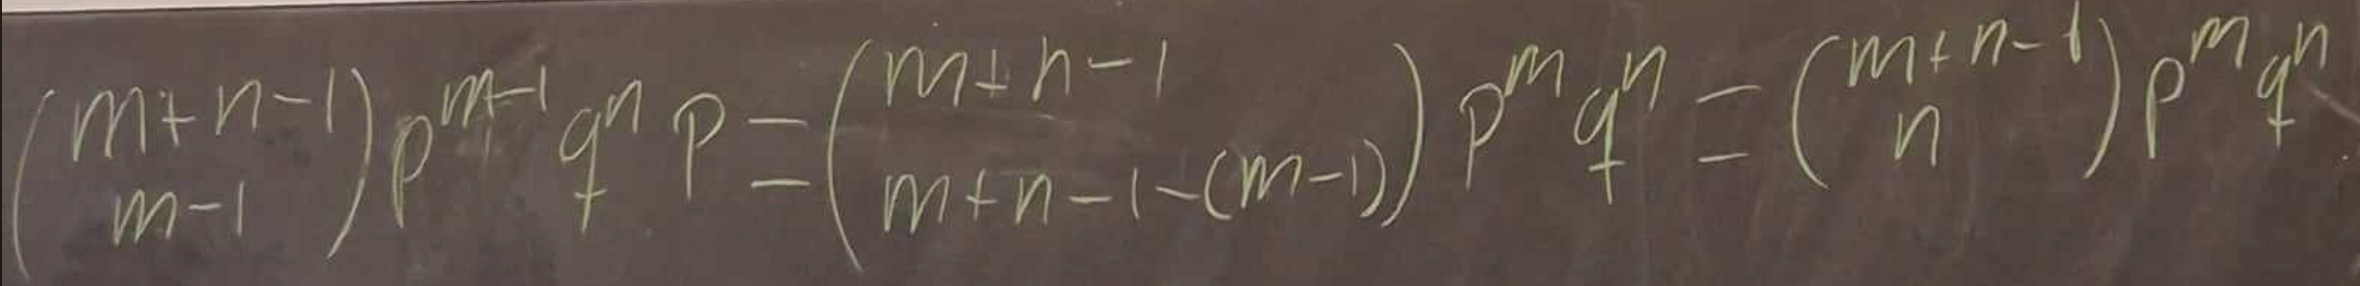 $\binom{m+n-1}{m-1} p^{m-1} q^n p = \binom{m+n-1}{m+n-1-(m-1)} p^m q^n = \binom{m+n-1}{n} p^m q^n$